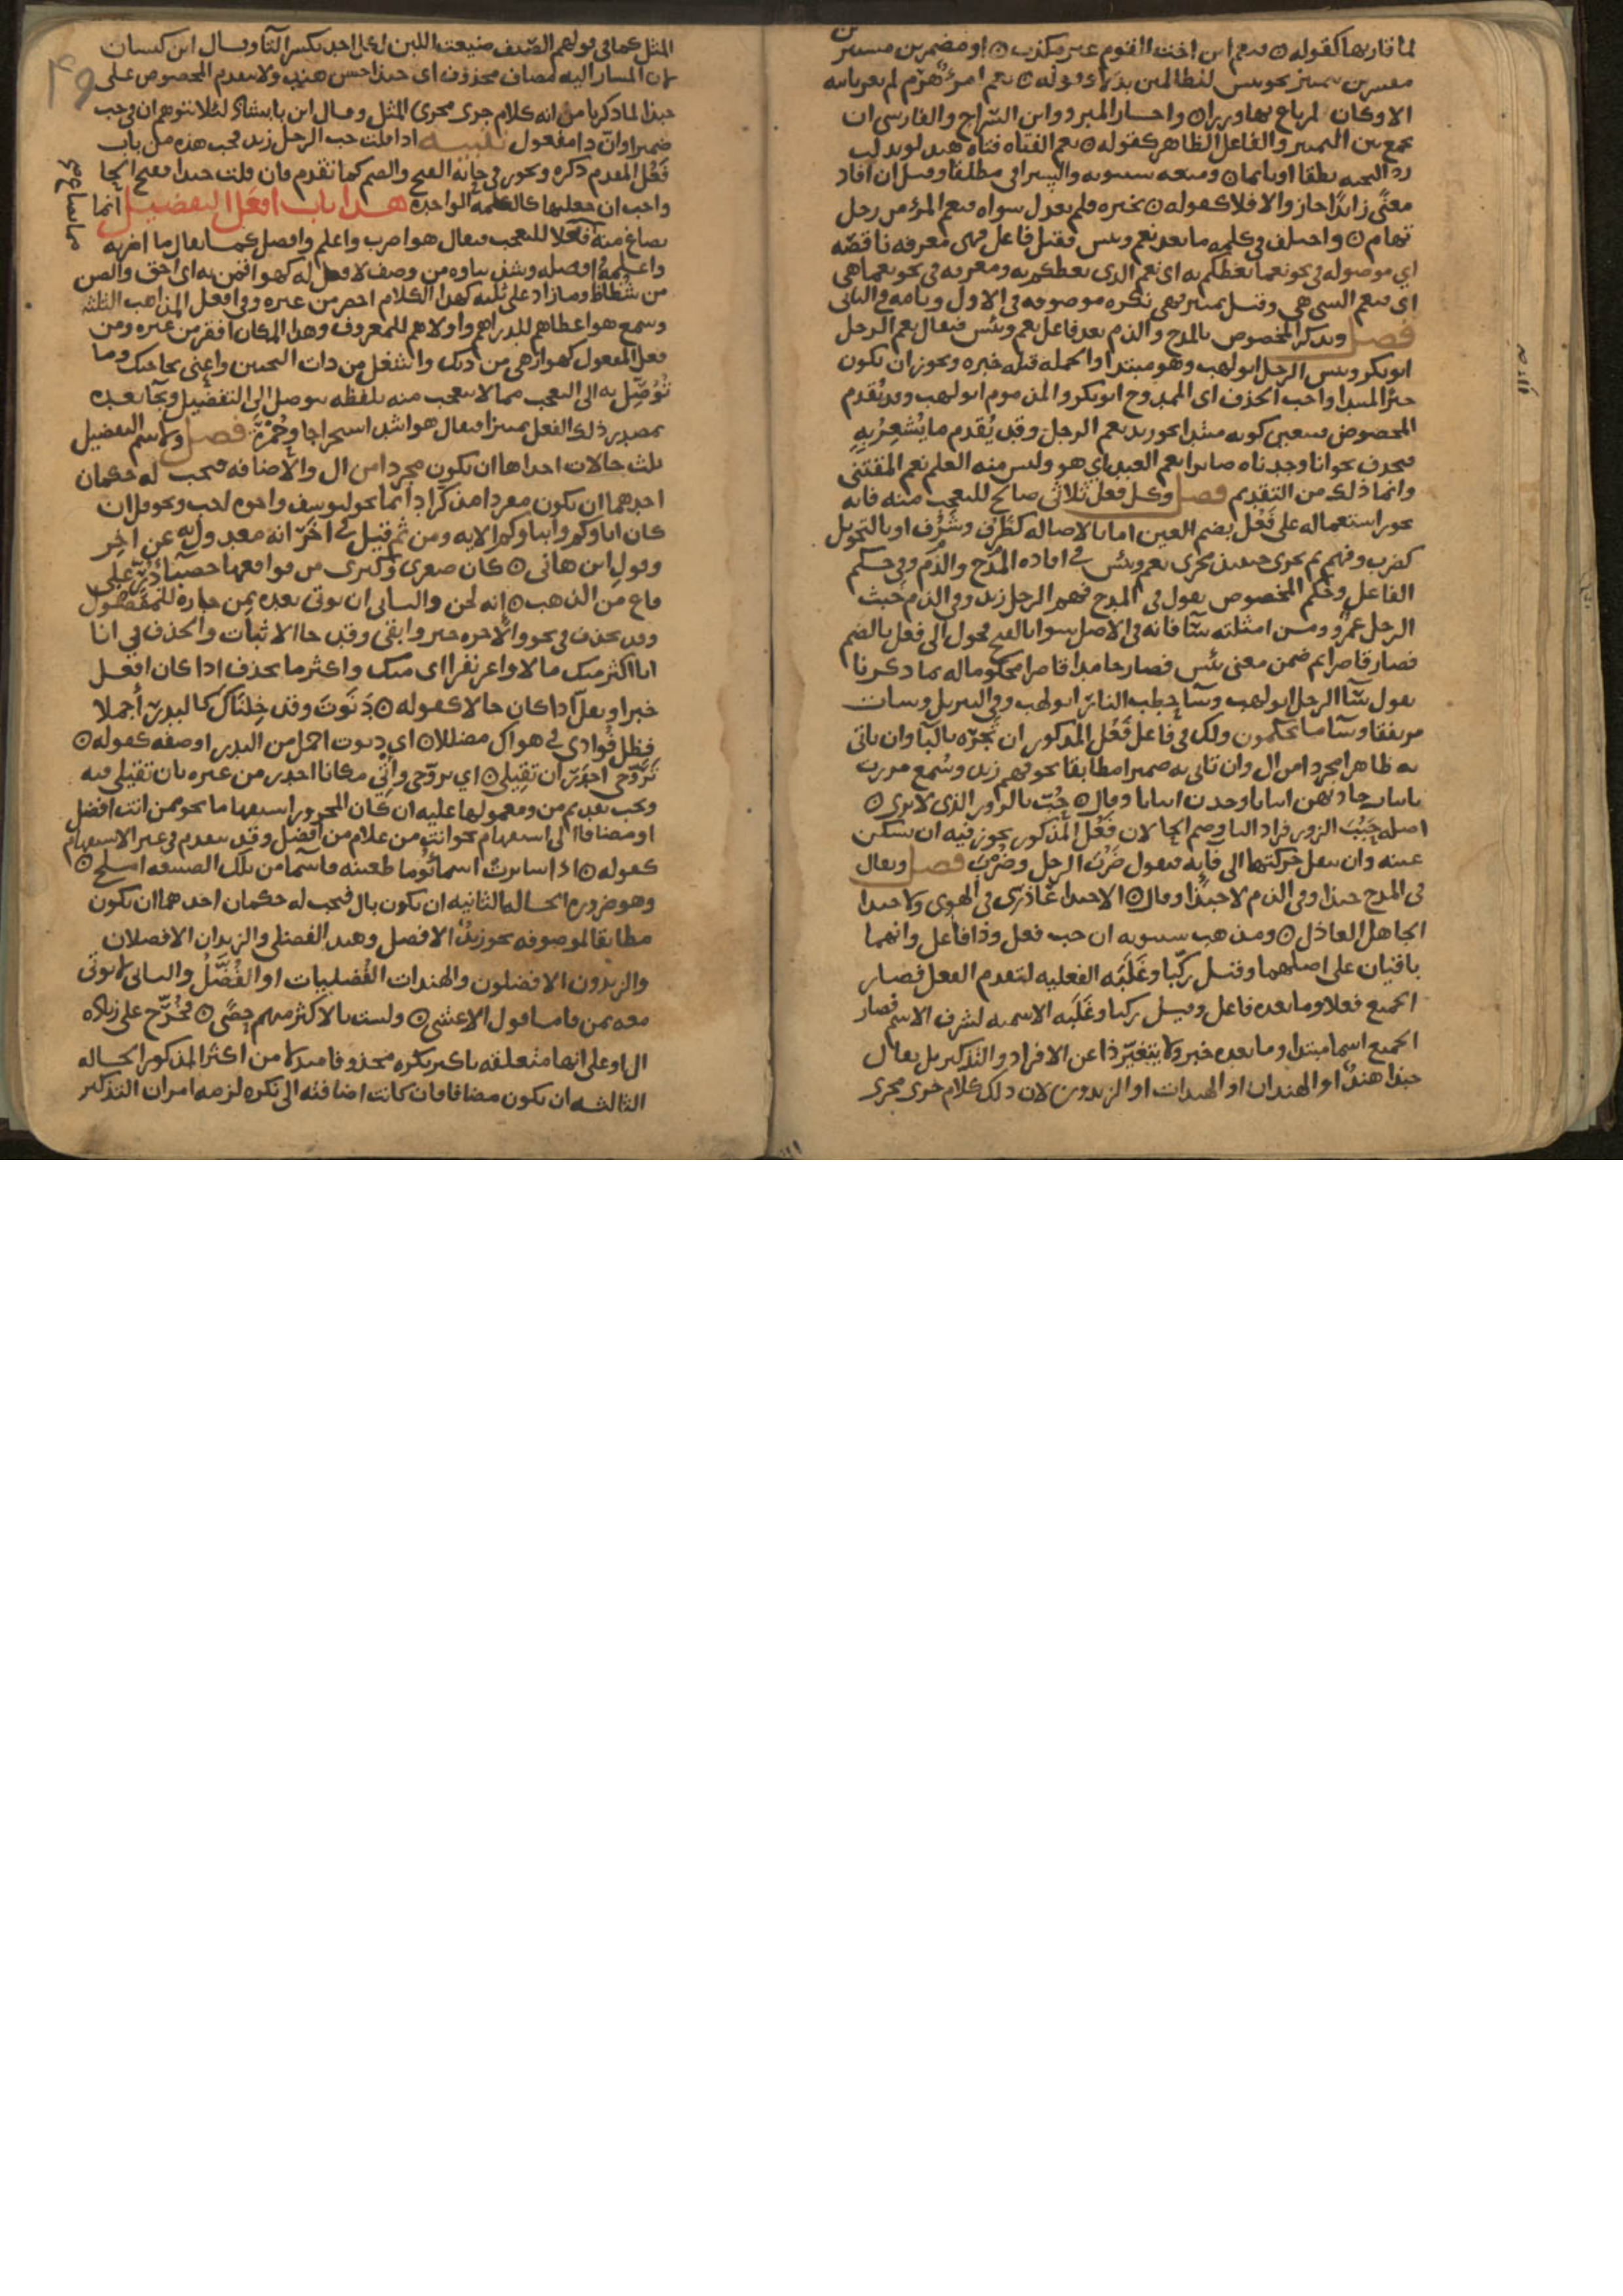 لما قاربها كقوله ٥ فنعم ابن اخت القوم غير مكذب ٥ او مضمرين مستترين
مفسرين بتمييز نحو بئس للظالمين بدلا وقوله ٥ نعم امرؤ هرم لم تعر نائبه
الا وكان لمرتاع بها وزرا ٥ واجاز المبرد وابن السراج والفارسي ان
يجمع بين التمييز والفاعل الظاهر كقوله ٥ نعم الفتاه فتاه هند لو بذلت
رد التحيه نطقا او بايما ٥ ومنعه سيبويه والسيرافي مطلقا وقيل ان افاد
معنًى زائدًا جاز والا فلا كقوله ٥ تخيره فلم يعدل سواه فنعم المرؤ من رجل
تهام ٥ واختلف في كلمه ما بعد نعم وبئس فقيل فاعل فهى معرفه ناقصّه
اي موصوله في نحو نعما يعظكم به اى نعم الذى يعظكم به ومعرفه في نحو نعما هي
اى فنعم الشى هي وقيل تمييز فهى نكره موصوفه في الاول وتامه في الثانى
فصل ويذكر المخصوص بالمدح والذم بعد فاعل نعم وبئس فيقال نعم الرجل
ابو بكر وبئس الرجل ابو لهب وهو مبتدا والجمله قبله خبره ويجوز ان يكون
خبرًا لمبتدا واجب الحذف اى الممدوح ابو بكر والمذموم ابو لهب وقد يُقدم
المخصوص فيتعين كونه مبتدا نحو زيد نعم الرجل وقد يُقدم ما يُشعِرُ بِهِ
فيحذف نحو انا وجدناه صابرا نعم العبد اي هو وليس منه العلم نعم المقتنى
وانما ذلك من التقديم فصل وكل فعل ثلاثى صالح للتعجب منه فانه
يجوز استعماله على فَعُل بضم العين اما بالاصاله كظَرُف وشَرُف او بالتحويل
كضرب وفهم ثم يجرى حينئذ مجرى نعم وبئس في افاده المدح والذم وفي حكم
الفاعل وحُكم المخصوص يقول في المدح فهم الرجل زيد وفي الذم خَبث
الرجل عمرٌو ومن امثلته سَآ فانه في الاصل سوا بالفتح فحول الى فعل بالضم
فصار قاصرا ثم ضمن معنى بئس فصار جامدا قاصرا محكوما له بما ذكرنا
يقول سَآ الرجل ابو لهب وسَآ حطب النار ابو لهب وفي التنزيل وسات
مرتفقا وسآ ما يحكمون ولك في فاعل فَعُل المذكور ان تجرّه بالبآ وان ياتى
به ظاهرا مجردا من ال وان تاتى به ضميرا مطابقا نحو فهم زيد وسُمع مررت
بابيات جاد بهن ابياتا وجدن ابياتا وقال ٥ حُبّ بالزور الذى لا يرى ٥
اصله حَبُبَ الزور فزاد البا وضم الحا لان فَعُل المذكور يجوز فيه ان تسكن
عينه وان تنقل حركتها الى فآيه فيقول ضَرْبَ الرجل وضُرْبَ فصل ويقال
في المدح حبذا وفي الذم لا حبذا وقال ٥ الا حبذا عَاذرى في الهوى ولا حبذا
الجاهل العاذل ٥ ومذهب سيبويه ان حب فعل وذا فاعل وانهما
باقيان على اصلهما وقيل ركّبا وغَلَبَه الفعليه لتقدم الفعل فصار
الجميع فعلا وما بعده فاعل وقيل ركبا وغَلَبَه الاسميه لشرف الاسم فصار
الجميع اسما مبتدا وما بعده خبر ولا يتغيّر ذا عن الافراد والتذكير بل يقال
حبذا هندٌ او الهندان او الهندات او الزيدون لان ذلك كلام جرى مجرى
المثل كما في قولهم الصّيف ضيعت اللبن لكل احد بكسر التآ وقال ابن كيسان
لان المشار اليه مضاف محذوف اى حبذا حسن هندٍ ولا يتقدم المخصوص على
حبذا لما ذكرنا من انه كلام جرى مجرى المثل وقال ابن بابشاذ لئلا يتوهم ان في حب
ضميرا وانّ ذا مفعول تنبيه اذا قلت حب الرجل زيد فحب هذه من باب
فَعُل المقدم ذكره ويجوز في حائه الفتح والضم كما تقدم فان قلت حبذا ففتح الحا
واجب ان جعلتها كالكلمه الواحده هذا باب افعَل التفضيل انما
يصاغ منه فعلا للتعجب فيقال هو اضرب واعلم وافضل كما يقال ما اضربه
واعلمه وافضله وشذ بناوه من وصف لا فعل له كهو اقمن به اى احق والص
من شُظاظ ومما زاد على ثلثه كهذا الكلام اخصر من غيره وفي افعل المذاهب الثلثه
وسمع هو اعطاهم للدراهم واولاهم للمعروف وهذا المكان اقفر من غيره ومن
فعل المفعول كهو ازهى من ديك واشغل من ذات النحيين واعنى بحاجتك وما
تُوُصّل به الى التعجب مما لا يتعجب منه بلفظه يتوصل الى التفضيل ويجآ بعده
بمصدر ذلك الفعل تمييزا فيقال هو اشد استخراجا وحُمْرَةً فصل ولاسم التفضيل
ثلث حالات احداها ان يكون مجردا من ال والاضافه فيجب له حكمان
احدهما ان يكون مفردا مذكرا دائما نحو ليوسف واخوه احب ونحو قل ان
كان اباؤكم وابناوكم الايه ومن ثم قيل في اخَرَ انه معدول به عن اخر
وقول ابن هانى ٥ كان صغرى وكبرى من فواقعها حصبآ دُرّ على
ارض من الذهب ٥ انه لحن والثانى ان يوتى بعده بمن جاره للمفضول
وقد يحذف في نحو والاخره خير وابقى وقد جا الاثبات والحذف في انا
اكثر منك مالا واعز نفرا اى منك واكثر ما يحذف اذا كان افعل
خبرا ويقل اذا كان حالا كقوله ٥ دَنَوْتَ وقد خِلنَاكَ كالبدرِ أجملا
فظل فُوادى في هواك مضللا ٥ اي دنوت اجمل من البدر او صفه كقوله ٥
تَرَوَّحى اجدَرَ أن تَقِيلى ٥ اي تروّحى وأتى مكانا اجدر من غيره بان تقيلى فيه
ويجب تقديم من ومعمولها عليه ان كان المجرور استفهاما نحو ممن انت افضل
او مضافا الى استفهام نحو انت من غلام من افضل وقد يتقدم في غير الاستفهام
كقوله ٥ اذا سايرتْ اسمآُ يومًا ظعينه فاسما من تلك الظعينه املح ٥
وهو ضروره الحاله الثانيه ان يكون بال فيجب له حكمان احدهما ان يكون
مطابقا لموصوفه نحو زيدٌ الافضل وهند الفضلى والزيدان الافضلان
والزيدون الافضلون والهندات الفُضليات او الفُضَّلُ والثانى لا يوتى
معه بمن فاما قول الاعشى ٥ ولست بالاكثر منهم حِصًى ٥ فخُرّج على زياده
ال او على انها متعلقه باكثر نكره محذوفا مبدلا من اكثر المذكور الحاله
الثالثه ان يكون مضافا فان كانت اضافته الى نكره لزمه امران التذكير